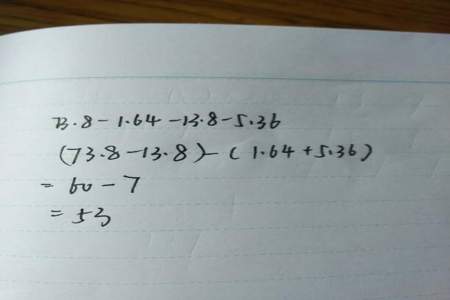 73.8-1.64-13.8-5.36
(73.8-13.8)-(1.64+5.36)
=60-7
=53